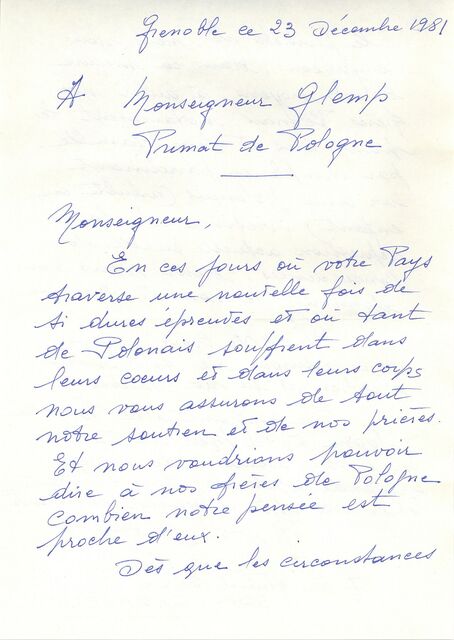 Grenoble ce 23 Décembre 1981
A Monseigneur Glemp
Primat de Pologne
Monseigneur,
En ces jours où votre Pays
traverse une nouvelle fois de
si dures épreuves et où tant
de Polonais souffrent dans
leurs coeurs et dans leurs corps
nous vous assurons de tout
notre soutien et de nos prières.
Et nous voudrions pouvoir
dire à nos frères de Pologne
combien notre pensée est
proche d'eux.
Dès que les circonstances